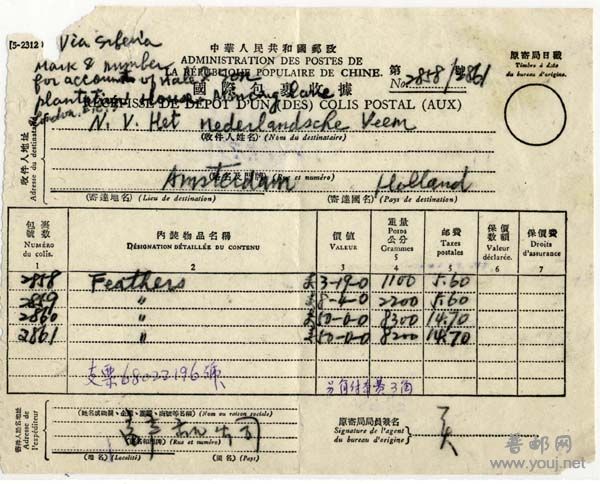 [5-2312)
Via Siberia
Mark & number
for account of Hale & Son
plantation house Mincing Lane
London. E.C.
中華人民共和國郵政
ADMINISTRATION DES POSTES DE
LA RÉPUBLIQUE POPULAIRE DE CHINE.
國際包裹收據
第 No 2858/2861 號
RÉCÉPISSÉ DE DÉPÔT D'UN (DES) COLIS POSTAL (AUX)
原寄局日戳
Timbre à date
du bureau d'origine.
收件人地址
Adresse du destinataire
N. V. Het Nederlandsche Veem
(收件人姓名) (Nom du destinataire)
(Rue et numéro)
Amsterdam Holland
(寄達地名) (Lieu de destination) (寄達國名) (Pays de destination)
包裹號數 Numéro du colis. 1
內裝物品名稱 DÉSIGNATION DÉTAILLÉE DU CONTENU 2
價值 VALEUR 3
重量 Poids 公分 Grammes 4
郵費 Taxes postales 5
保價數額 Valeur déclarée. 6
保價費 Droits d'assurance 7
2858 Feathers £3-19-0 1100 5.60
2859 " £8-4-0 2200 5.60
2860 " £50-0-0 8300 14.70
2861 " £50-0-0 8200 14.70
支票68022196號
寄件人姓名地址
Adresse de l'expéditeur
(Nom ou raison sociale)
(Rue et numéro)
(地名) (Localité) (國名) (Pays)
原寄局局員簽名
Signature de l'agent
du bureau d'origine
普邮网
www.youj.net